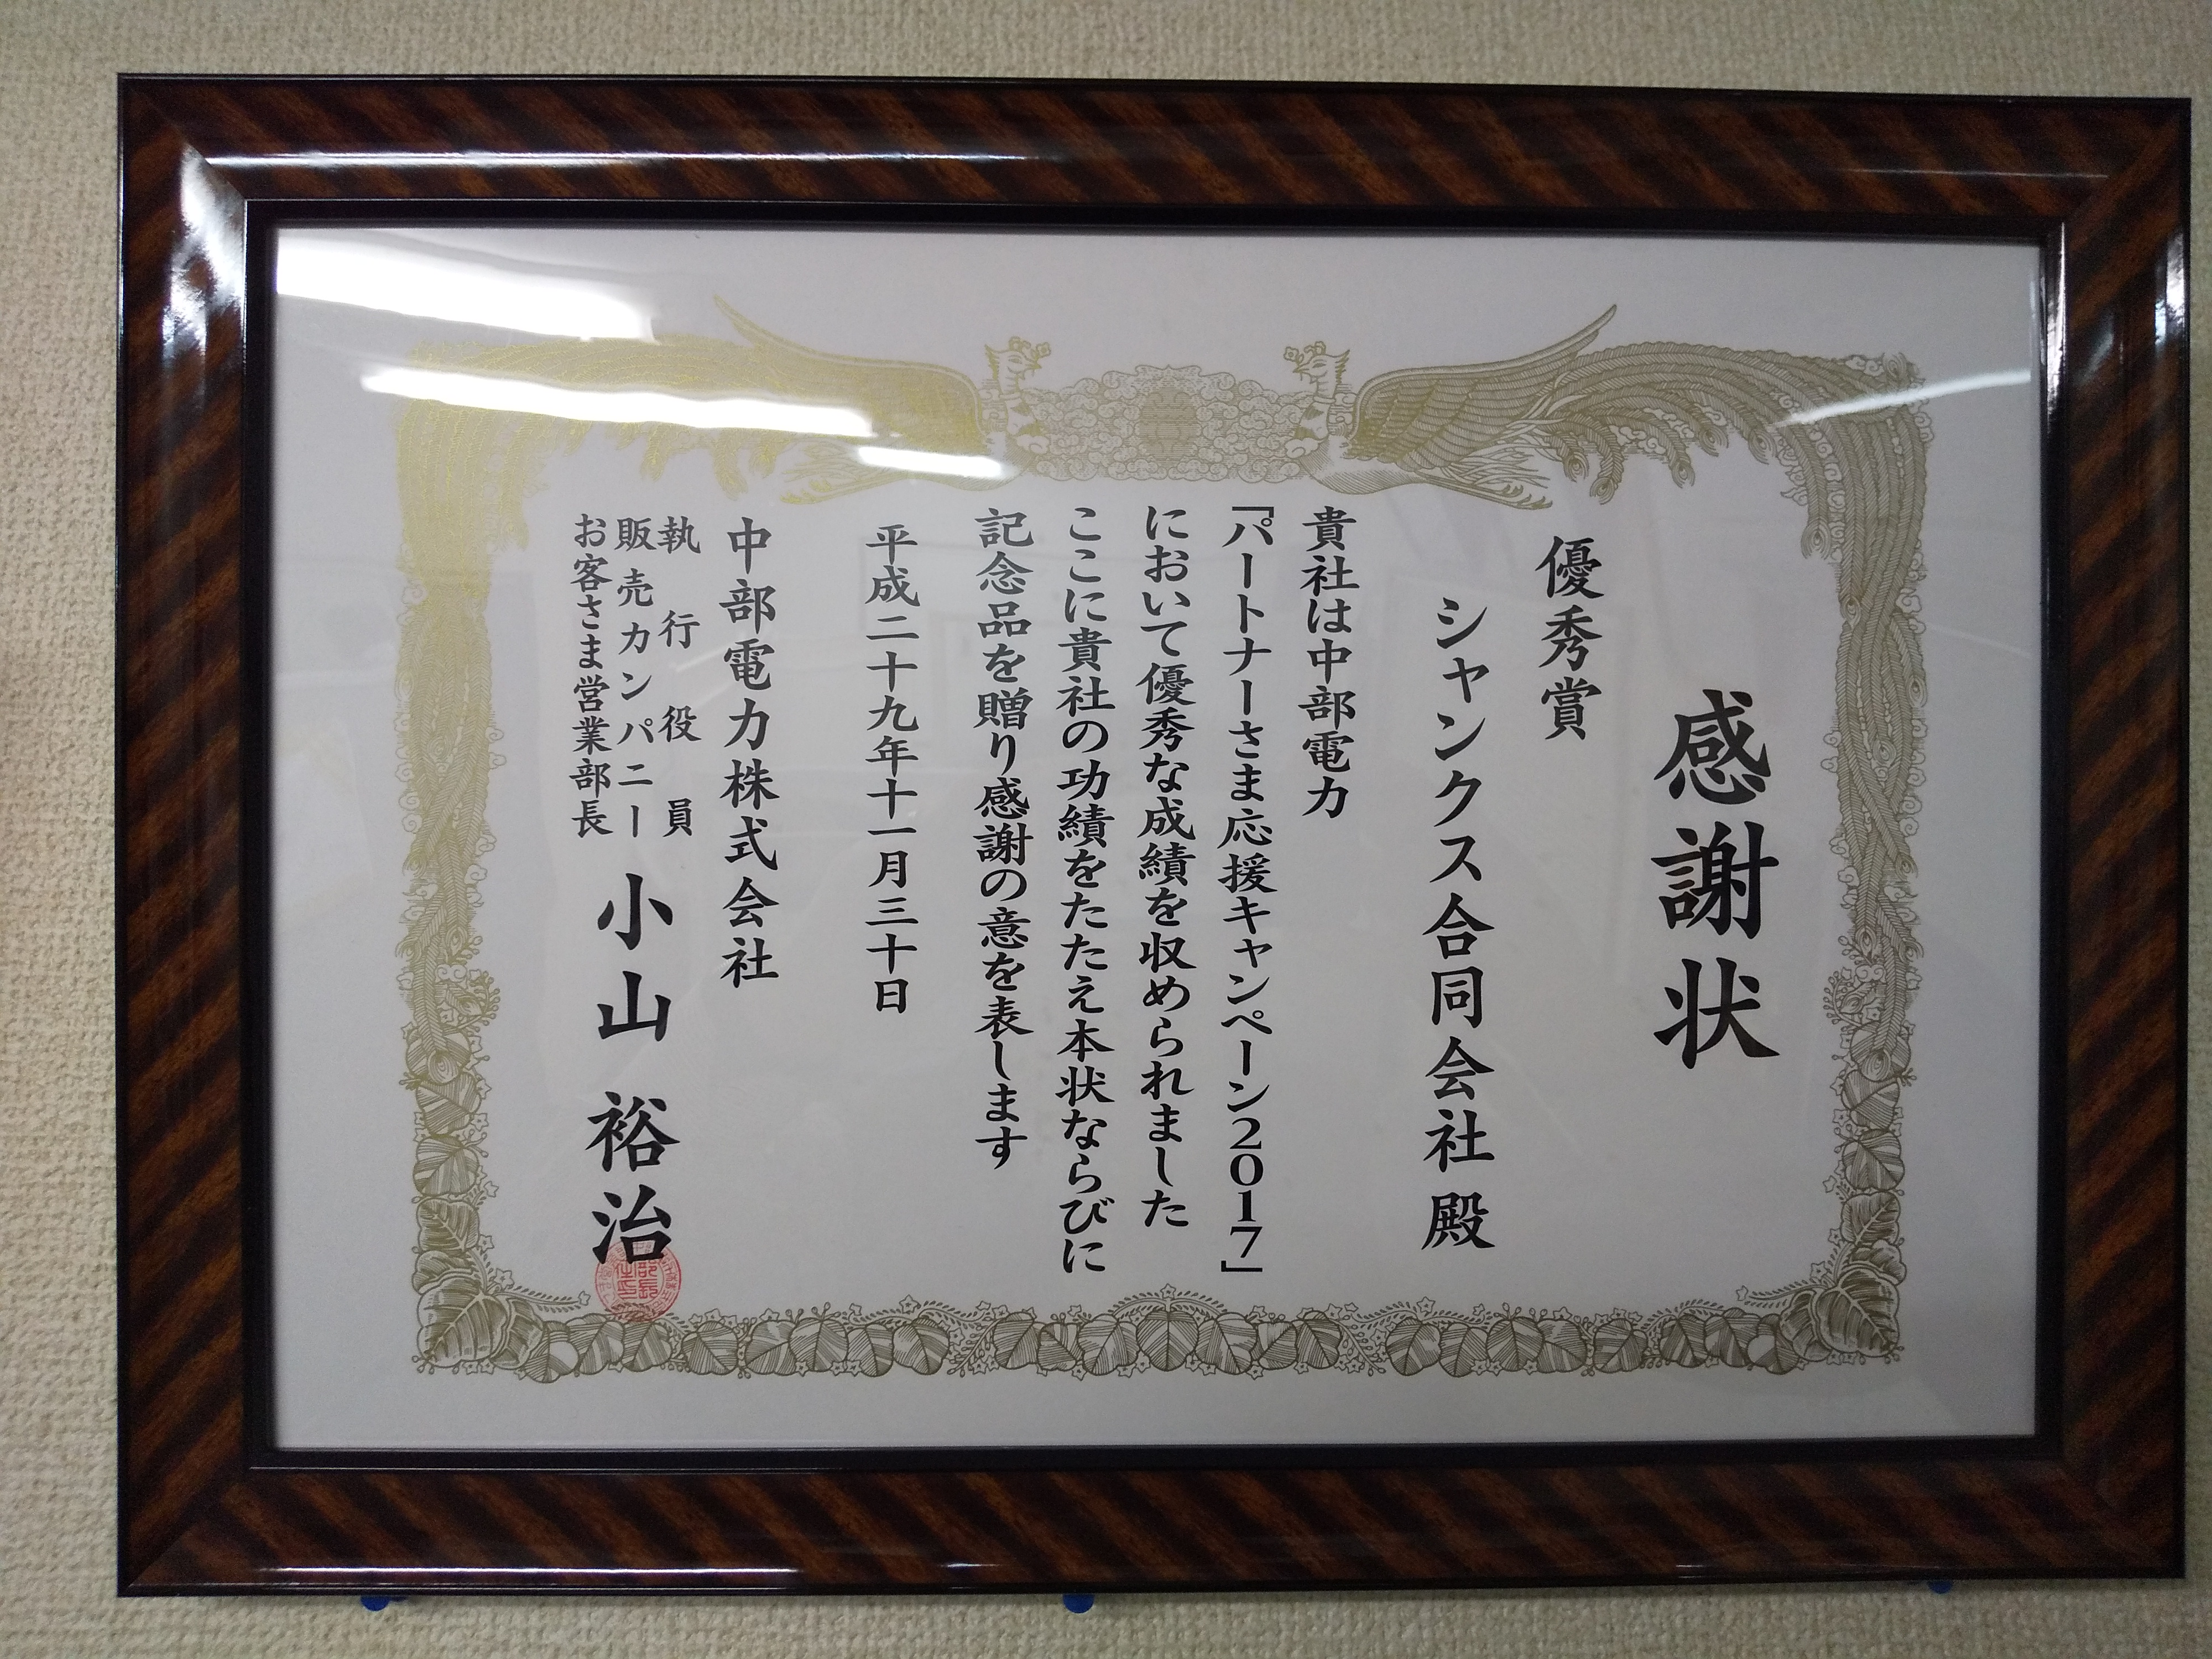 感謝状
優秀賞
シャンクス合同会社 殿
貴社は中部電力
「パートナーさま応援キャンペーン2017」
において優秀な成績を収められました
ここに貴社の功績をたたえ本状ならびに
記念品を贈り感謝の意を表します
平成二十九年十一月三十日
中部電力株式会社
執行役員
販売カンパニー
お客さま営業部長
小山 裕治